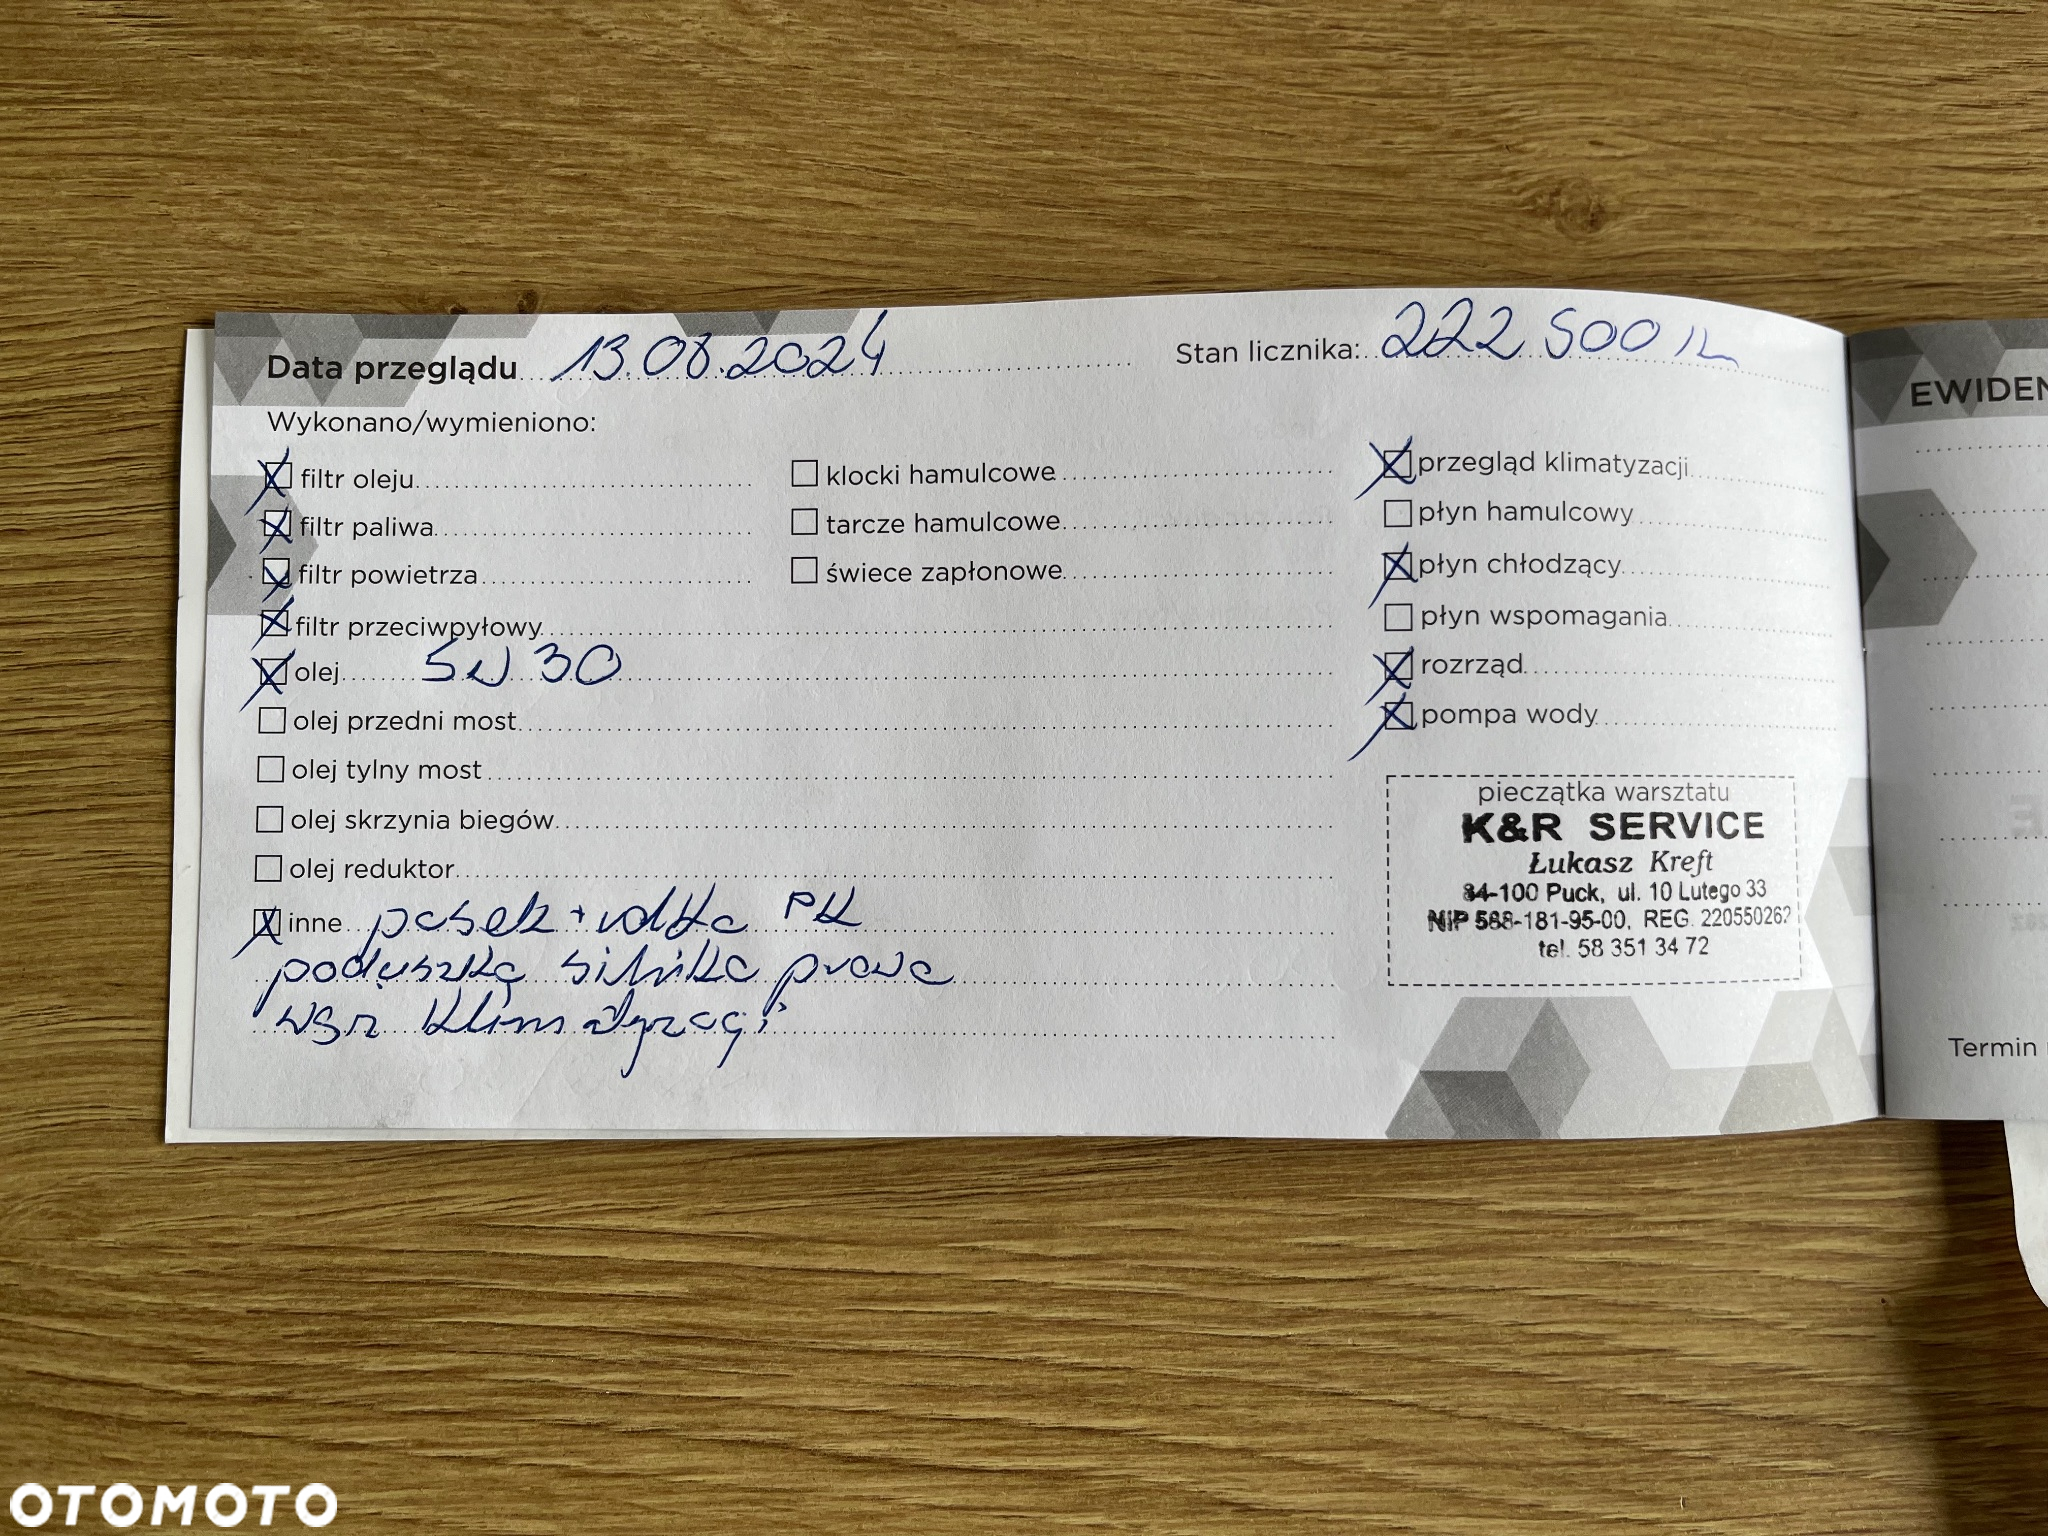 Data przeglądu 13.08.2024 Stan licznika: 222 500 km
Wykonano/wymieniono:
filtr oleju klocki hamulcowe przegląd klimatyzacji
filtr paliwa tarcze hamulcowe płyn hamulcowy
filtr powietrza świece zapłonowe płyn chłodzący
filtr przeciwpyłowy płyn wspomagania
olej 5W30 rozrząd
olej przedni most pompa wody
olej tylny most
olej skrzynia biegów
olej reduktor
inne pasek + rolka PK
poduszka silnika prawa
klimatyzacji
pieczątka warsztatu
K&R SERVICE
Łukasz Kreft
84-100 Puck, ul. 10 Lutego 33
NIP 588-181-95-00, REG. 220550262
tel. 58 351 34 72
EWIDEN
Termin
OTOMOTO